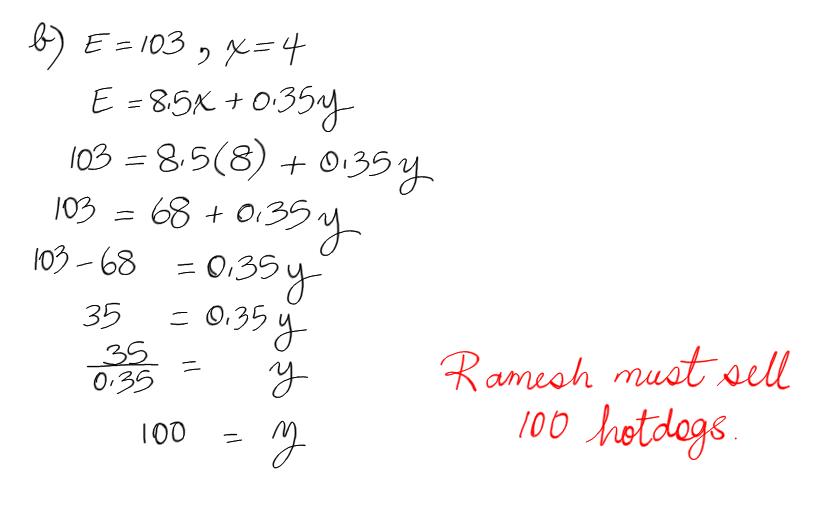 b) E = 103 , x = 4
E = 8.5x + 0.35y
103 = 8.5(8) + 0.35y
103 = 68 + 0.35y
103 - 68 = 0.35y
35 = 0.35y
35/0.35 = y
100 = y
Ramesh must sell
100 hotdogs.